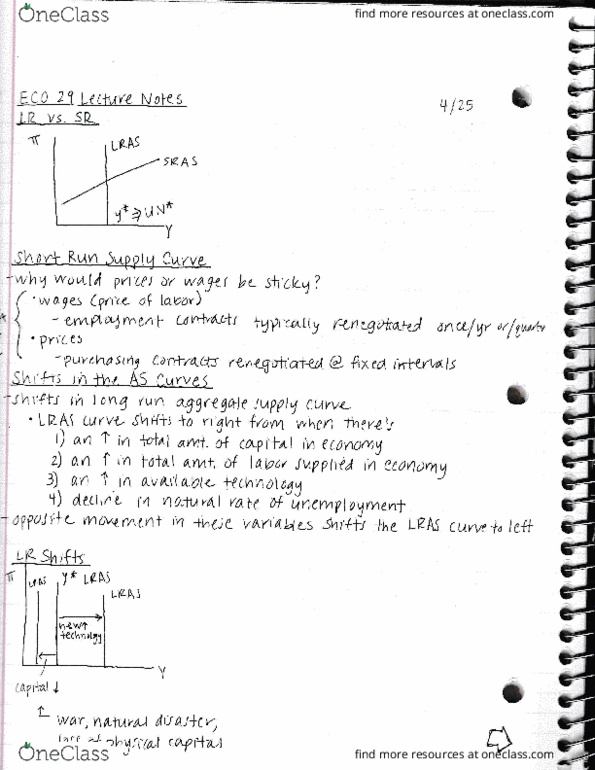 OneClass
find more resources at oneclass.com
ECO 29 Lecture Notes
4/25
LR vs. SR
π
LRAS
SRAS
y* ⇒ UN*
Y
Short Run Supply Curve
-why would prices or wages be sticky?
• wages (price of labor)
- employment contracts typically renegotiated once/yr or/quarter
• prices
-purchasing contracts renegotiated @ fixed intervals
Shifts in the AS Curves
-shifts in long run aggregate supply curve
• LRAS curve shifts to right from when there's
1) an ↑ in total amt. of capital in economy
2) an ↑ in total amt. of labor supplied in economy
3) an ↑ in available technology
4) decline in natural rate of unemployment
-opposite movement in these variables shifts the LRAS curve to left
LR Shifts
π
LRAS
y* LRAS
LRAS
new↑
technology
Y
capital ↓
war, natural disaster,
loss of physical capital
OneClass
find more resources at oneclass.com